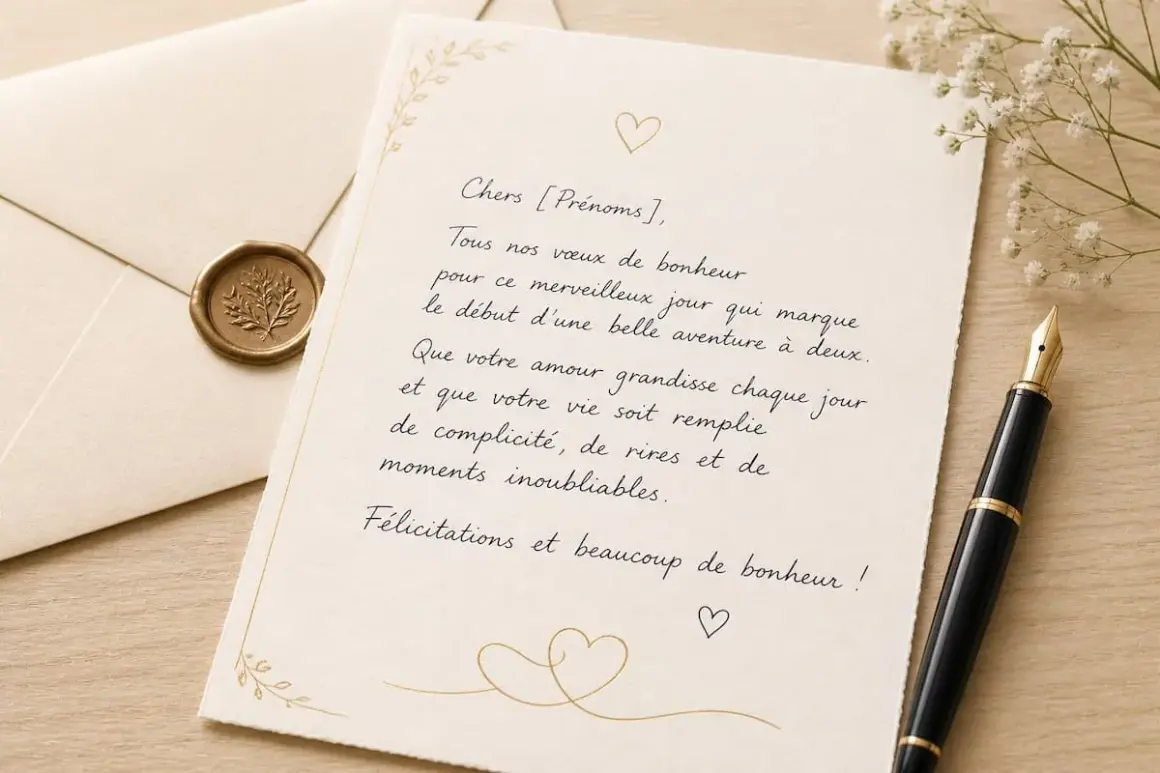 Chers [Prénoms],
Tous nos vœux de bonheur
pour ce merveilleux jour qui marque
le début d'une belle aventure à deux.
Que votre amour grandisse chaque jour
et que votre vie soit remplie
de complicité, de rires et de
moments inoubliables.
Félicitations et beaucoup de bonheur !